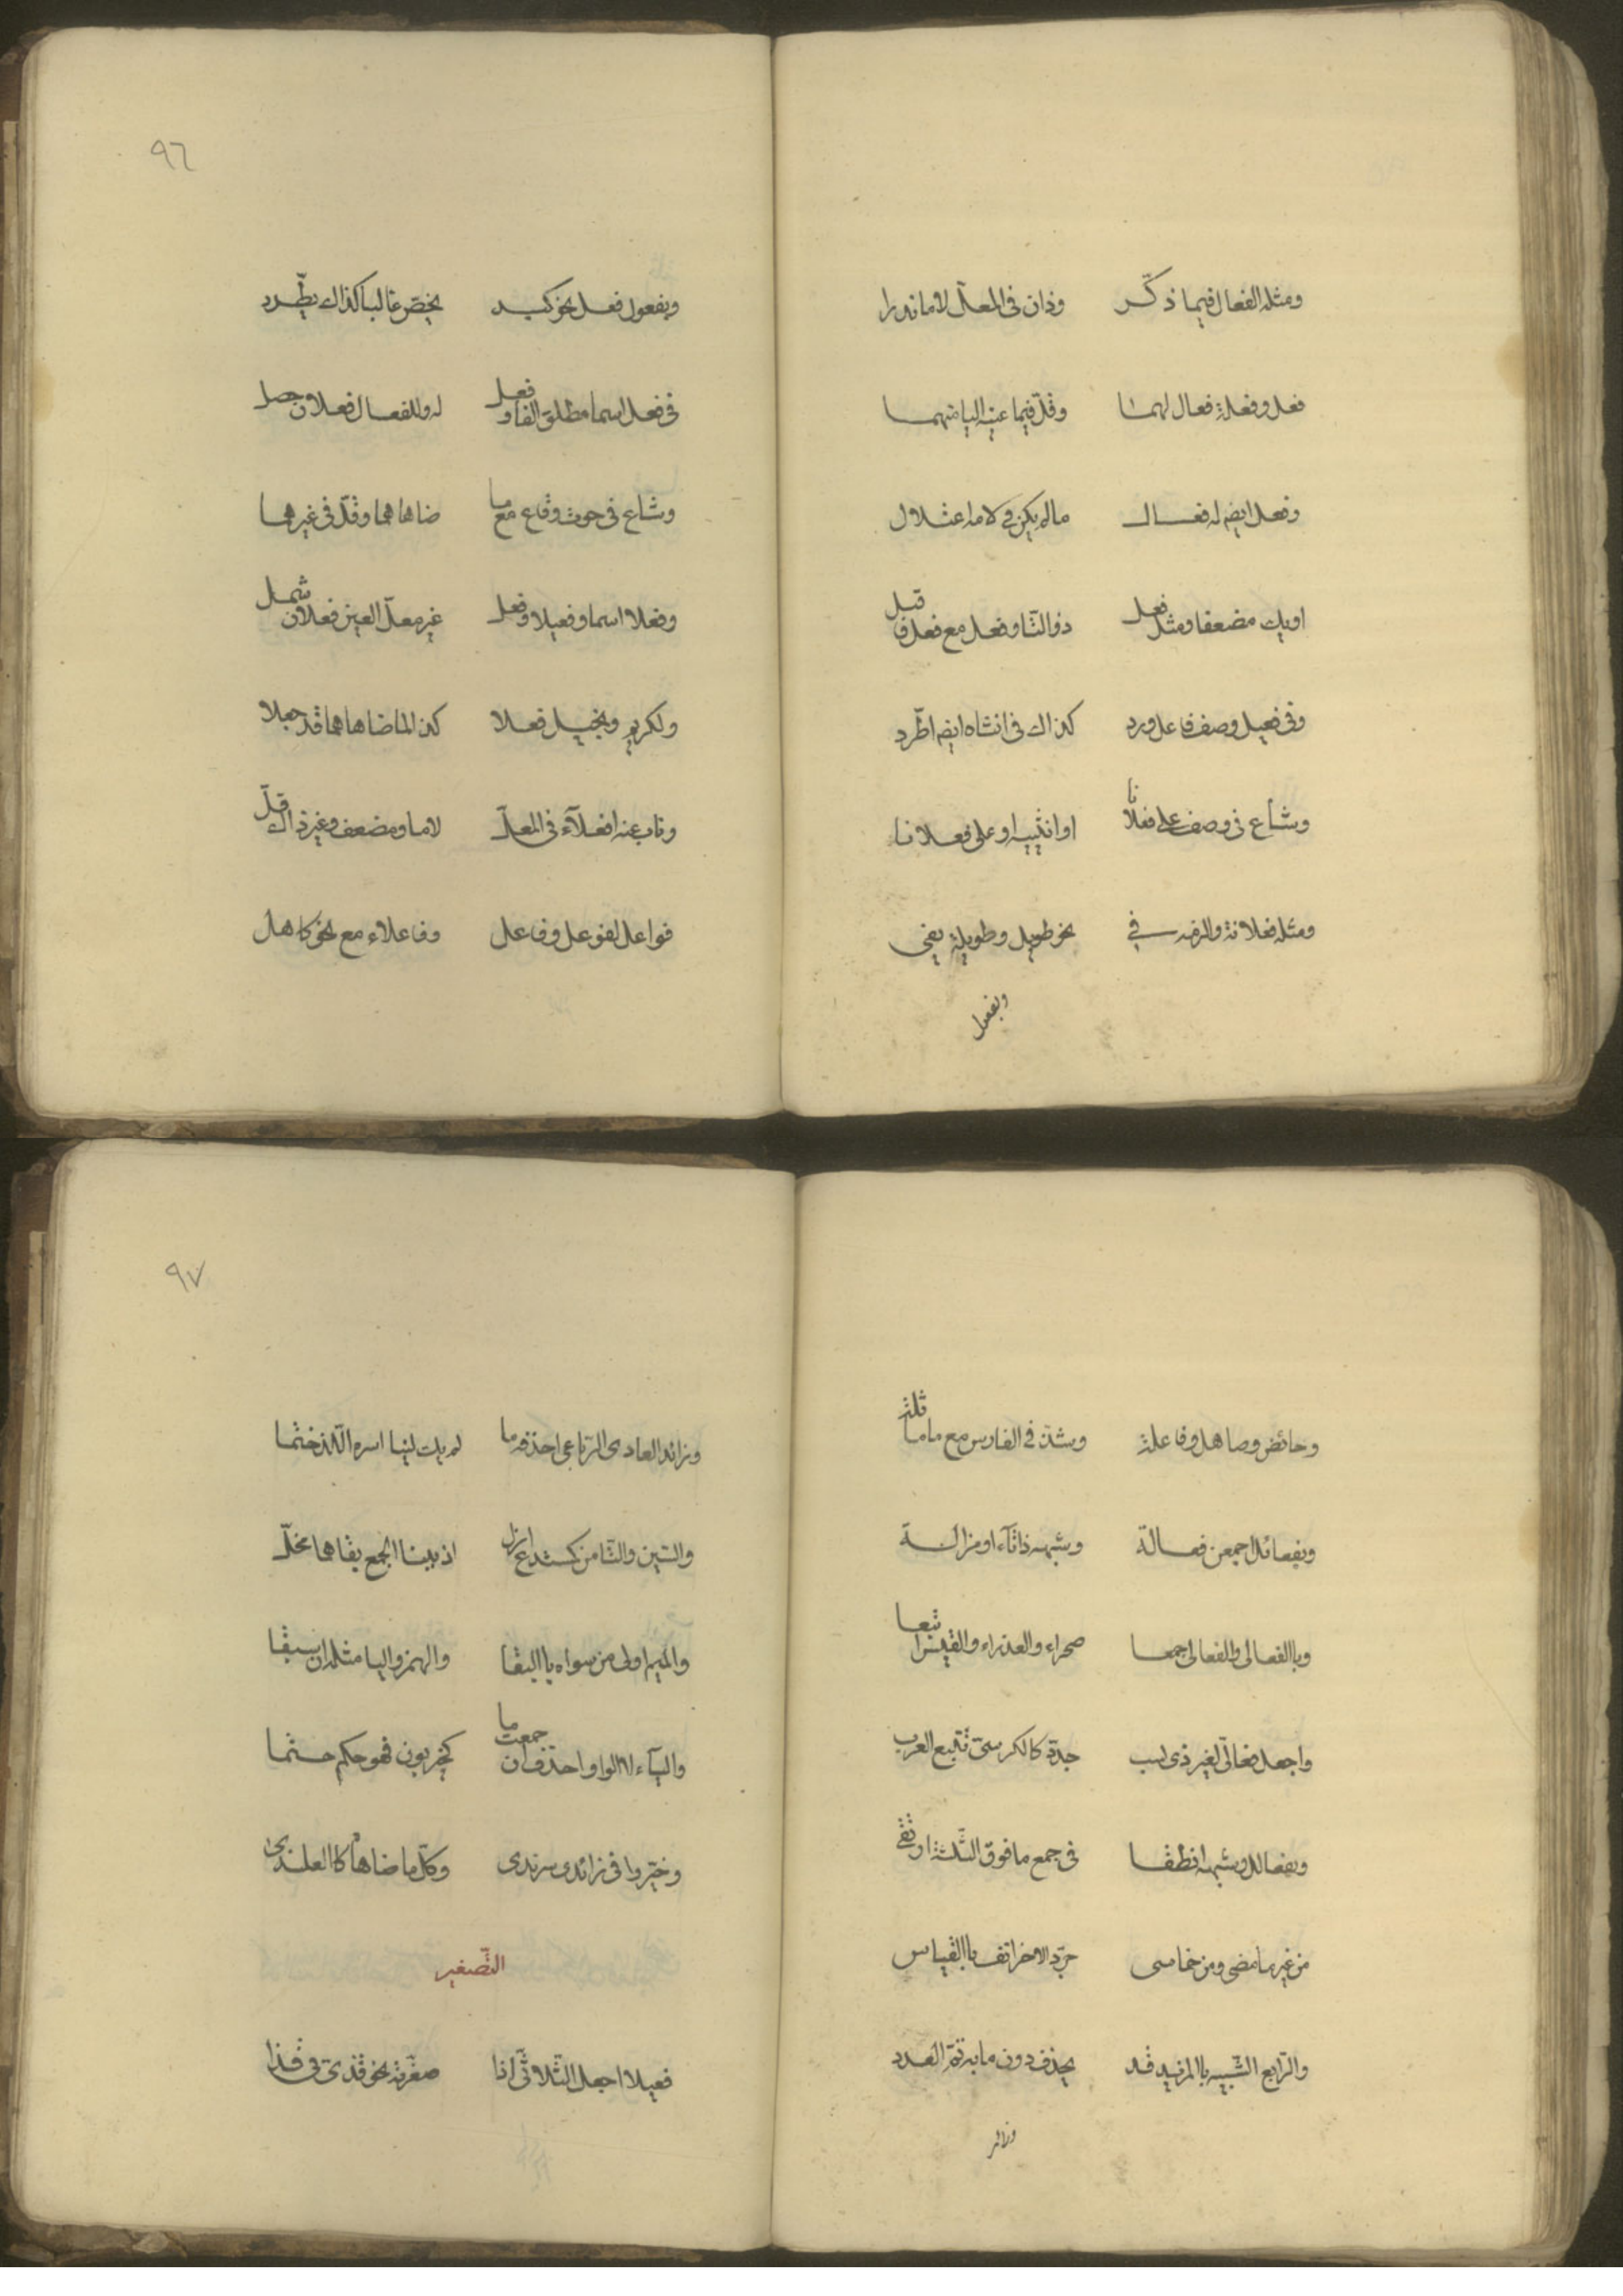 ومثله الفعال فيما ذكّر وذان فى المعلّ لاما ندرا
فعل وفعلة فعال لهما وقلّ فيما عينه اليا منهما
وفعل ايضم له فعال ما لم يكن فى لامه اعتلال
او يك مضعفا ومثل فعل ذو التا وفعل مع فعل فاقبل
وفى فعيل وصف فاعل ورد كذاك فى انثاه ايضم اطّرد
وشاع فى وصف على فعلانا او انثييه او على فعلانا
ومثله فعلانة والزمه فى نحو طويل وطويلة يفى
وبفعول
٩٦
وبفعول فعل نحو كبد يخصّ غالبا كذاك يطّرد
فى فعل اسما مطلق الفا وفعل له وللفعال فعلان حصل
وشاع فى حوت وقاع مع ما ضاهاهما وقلّ فى غيرهما
وفعلا اسما وفعيلا وفعل غير معلّ العين فعلان شمل
ولكريم وبخيل فعلا كذا لما ضاهاهما قد جعلا
وناب عنه افعلآء فى المعلّ لاما ومضعف وغير ذاك قلّ
فواعل لفوعل وفاعل وفاعلاء مع نحو كاهل
وحائض وصاهل وفاعلة وشذّ فى الفارس مع ما ماثله
وبفعائل اجمعن فعالة وشبهه ذا تآء او مزالة
وباالفعالى والفعالى جمعا صحراء والعذراء والقيس اتبعا
واجعل فعالىّ لغير ذى نسب جدّد كالكرسىّ تتبع العرب
وبفعالل وشبهه انطقا فى جمع ما فوق الثّلثة ارتقى
من غير ما مضى ومن خماسى جرّد الاخر انف باالقياس
والرّابع الشّبيه باالمزيد قد يحذف دون ما به تمّ العدد
وزائد
٩٧
وزائد العادى الرّباعى احذفه ما لم يك لينا اسره اللّذ ختما
والسّين والتّا من كمستدع ازل اذ ببنا الجمع بقاهما مخلّ
والميم اولى من سواه باالبقا والهمز واليا مثله ان سبقا
واليآء لا الواو احذف ان جمعت ما كحيزبون فهو حكم حتما
وخيّروا فى زائدى سرندى وكلّ ما ضاهاه كاالعلندى
التّصغير
فعيلا اجعل الثّلاثىّ اذا صغّرته نحو قذىّ فى قذا